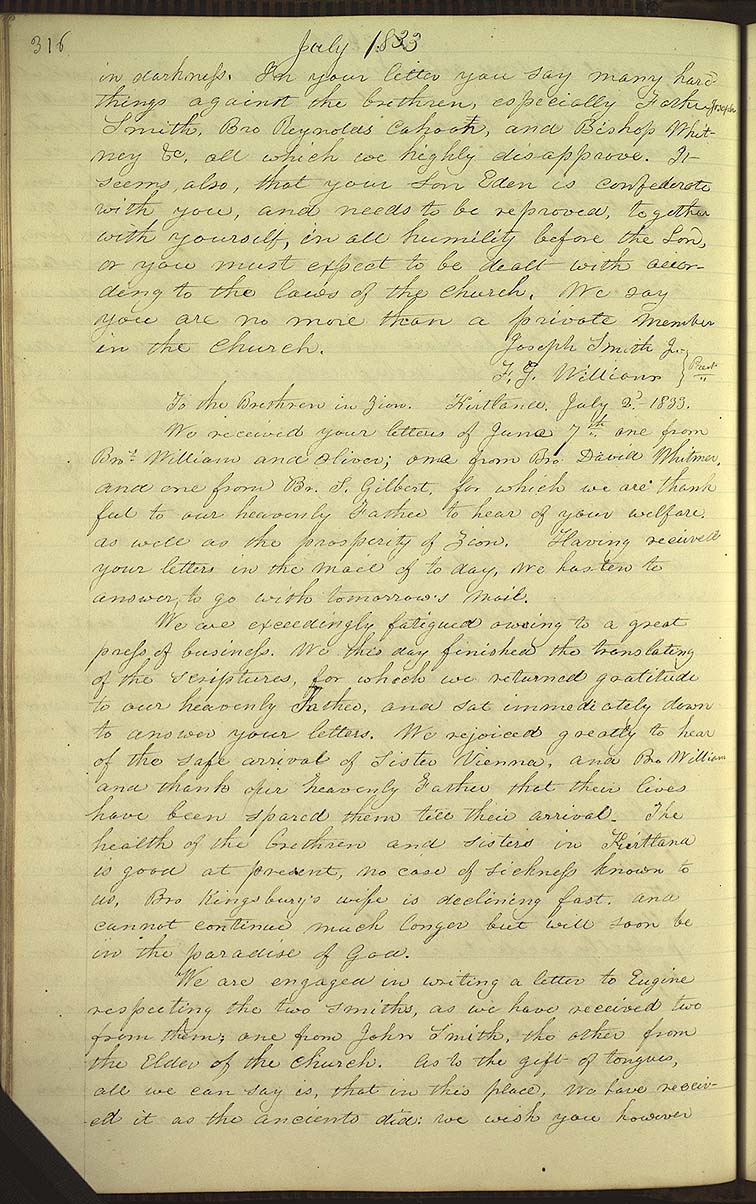 316
July 1833
in darkness. In your letter you say many hard
things against the brethren, especially Father Joseph
Smith, Bro Reynolds Cahoon, and Bishop Whit-
ney &c, all which we highly disapprove. It
seems, also, that your son Eden is confederate
with you, and needs to be reproved, together
with yourself, in all humility before the Lord,
or you must expect to be dealt with accor-
ding to the laws of the church. We say
you are no more than a private member
in the church.
Joseph Smith Jr.
F. G. Williams } Prest "
To the Brethren in Zion. Kirtland, July 2d- 1833.
We received your letters of June 7th: one from
Bros. William and Oliver; one from Bro David Whitmer,
and one from Br. S. Gilbert, for which we are thank
ful to our heavenly Father to hear of your welfare.
as well as the prosperity of Zion. Having received
your letters in the mail of to day, we hasten to
answer, to go with tomorrow's mail.
We are exceedingly fatigued owing to a great
press of business. We this day finished the translating
of the scriptures, for which we returned gratitude
to our heavenly Father, and sat immediately down
to answer your letters. We rejoiced greatly to hear
of the safe arrival of Sister Vienna, and Bro William
and thank our heavenly Father that their lives
have been spared them till their arrival. The
health of the brethren and sisters in Kirtland
is good at present, no case of sickness known to
us, Bro Kingsbury's wife is declining fast. and
cannot continue much longer but will soon be
in the paradise of God.
We are engaged in writing a letter to Eugine
respecting the two Smiths, as we have received two
from them; one from John Smith, the other from
the Elder of the church. As to the gift of tongues,
all we can say is, that in this place, we have receiv-
ed it as the ancients did: we wish you however